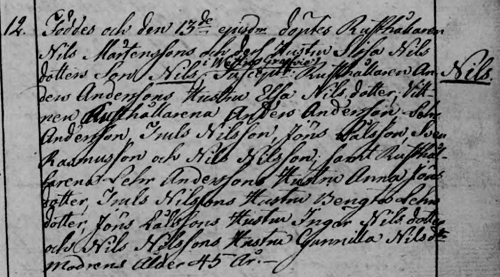 12. Föddes och den 13de ejusdm döptes Rusthållaren
Nils Mårtenssons och dess Hustru Elsa Nils
dotters Son Nils, Suscept: Rusthållaren An
ders Anderssons Hustru Elsa Nilsdotter, Vitt
Nils
nen Rusthållarena Anders Andersson, Pehr
Andersson, Truls Nilsson, Jöns Pålsson, Sven
Rasmusson och Nils Nilsson, samt Rusthål
larena Pehr Anderssons Hustru Anna Jöns
dotter, Truls Nilssons Hustru Bengta Pehrs
dotter, Jöns Pålssons Hustru Ingar Nilsdotter
och Nils Nilssons Hustru Gunnilla Nilsdr
Modrens Ålder 45 År.–